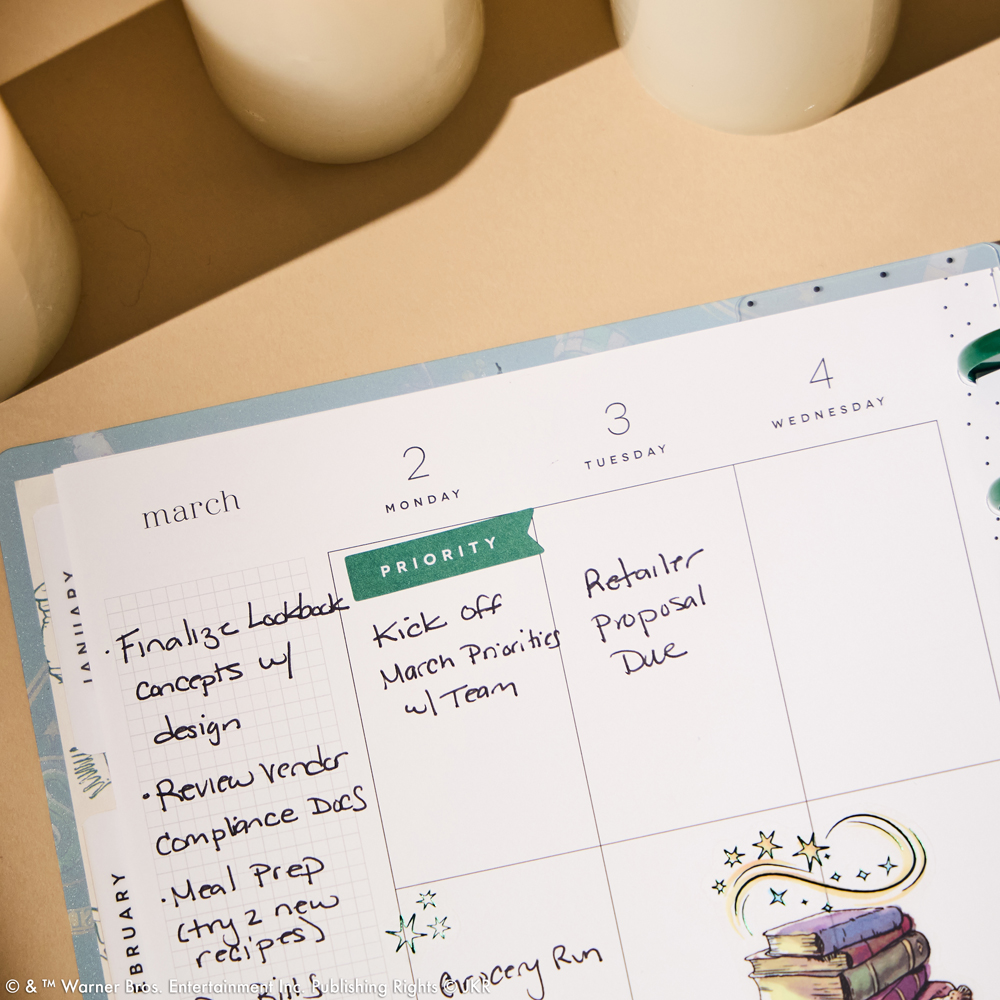 2
MONDAY
3
TUESDAY
4
WEDNESDAY
march
JANUARY
BRUARY
· Finalize Lookbook
concepts w/
design
· Review Vendor
Compliance Docs
· Meal Prep
(try 2 new
recipes)
PRIORITY
Kick off
March Priorities
w/ Team
Retailer
Proposal
Due
Grocery Run
© & ™ Warner Bros. Entertainment Inc. Publishing Rights ©JKR